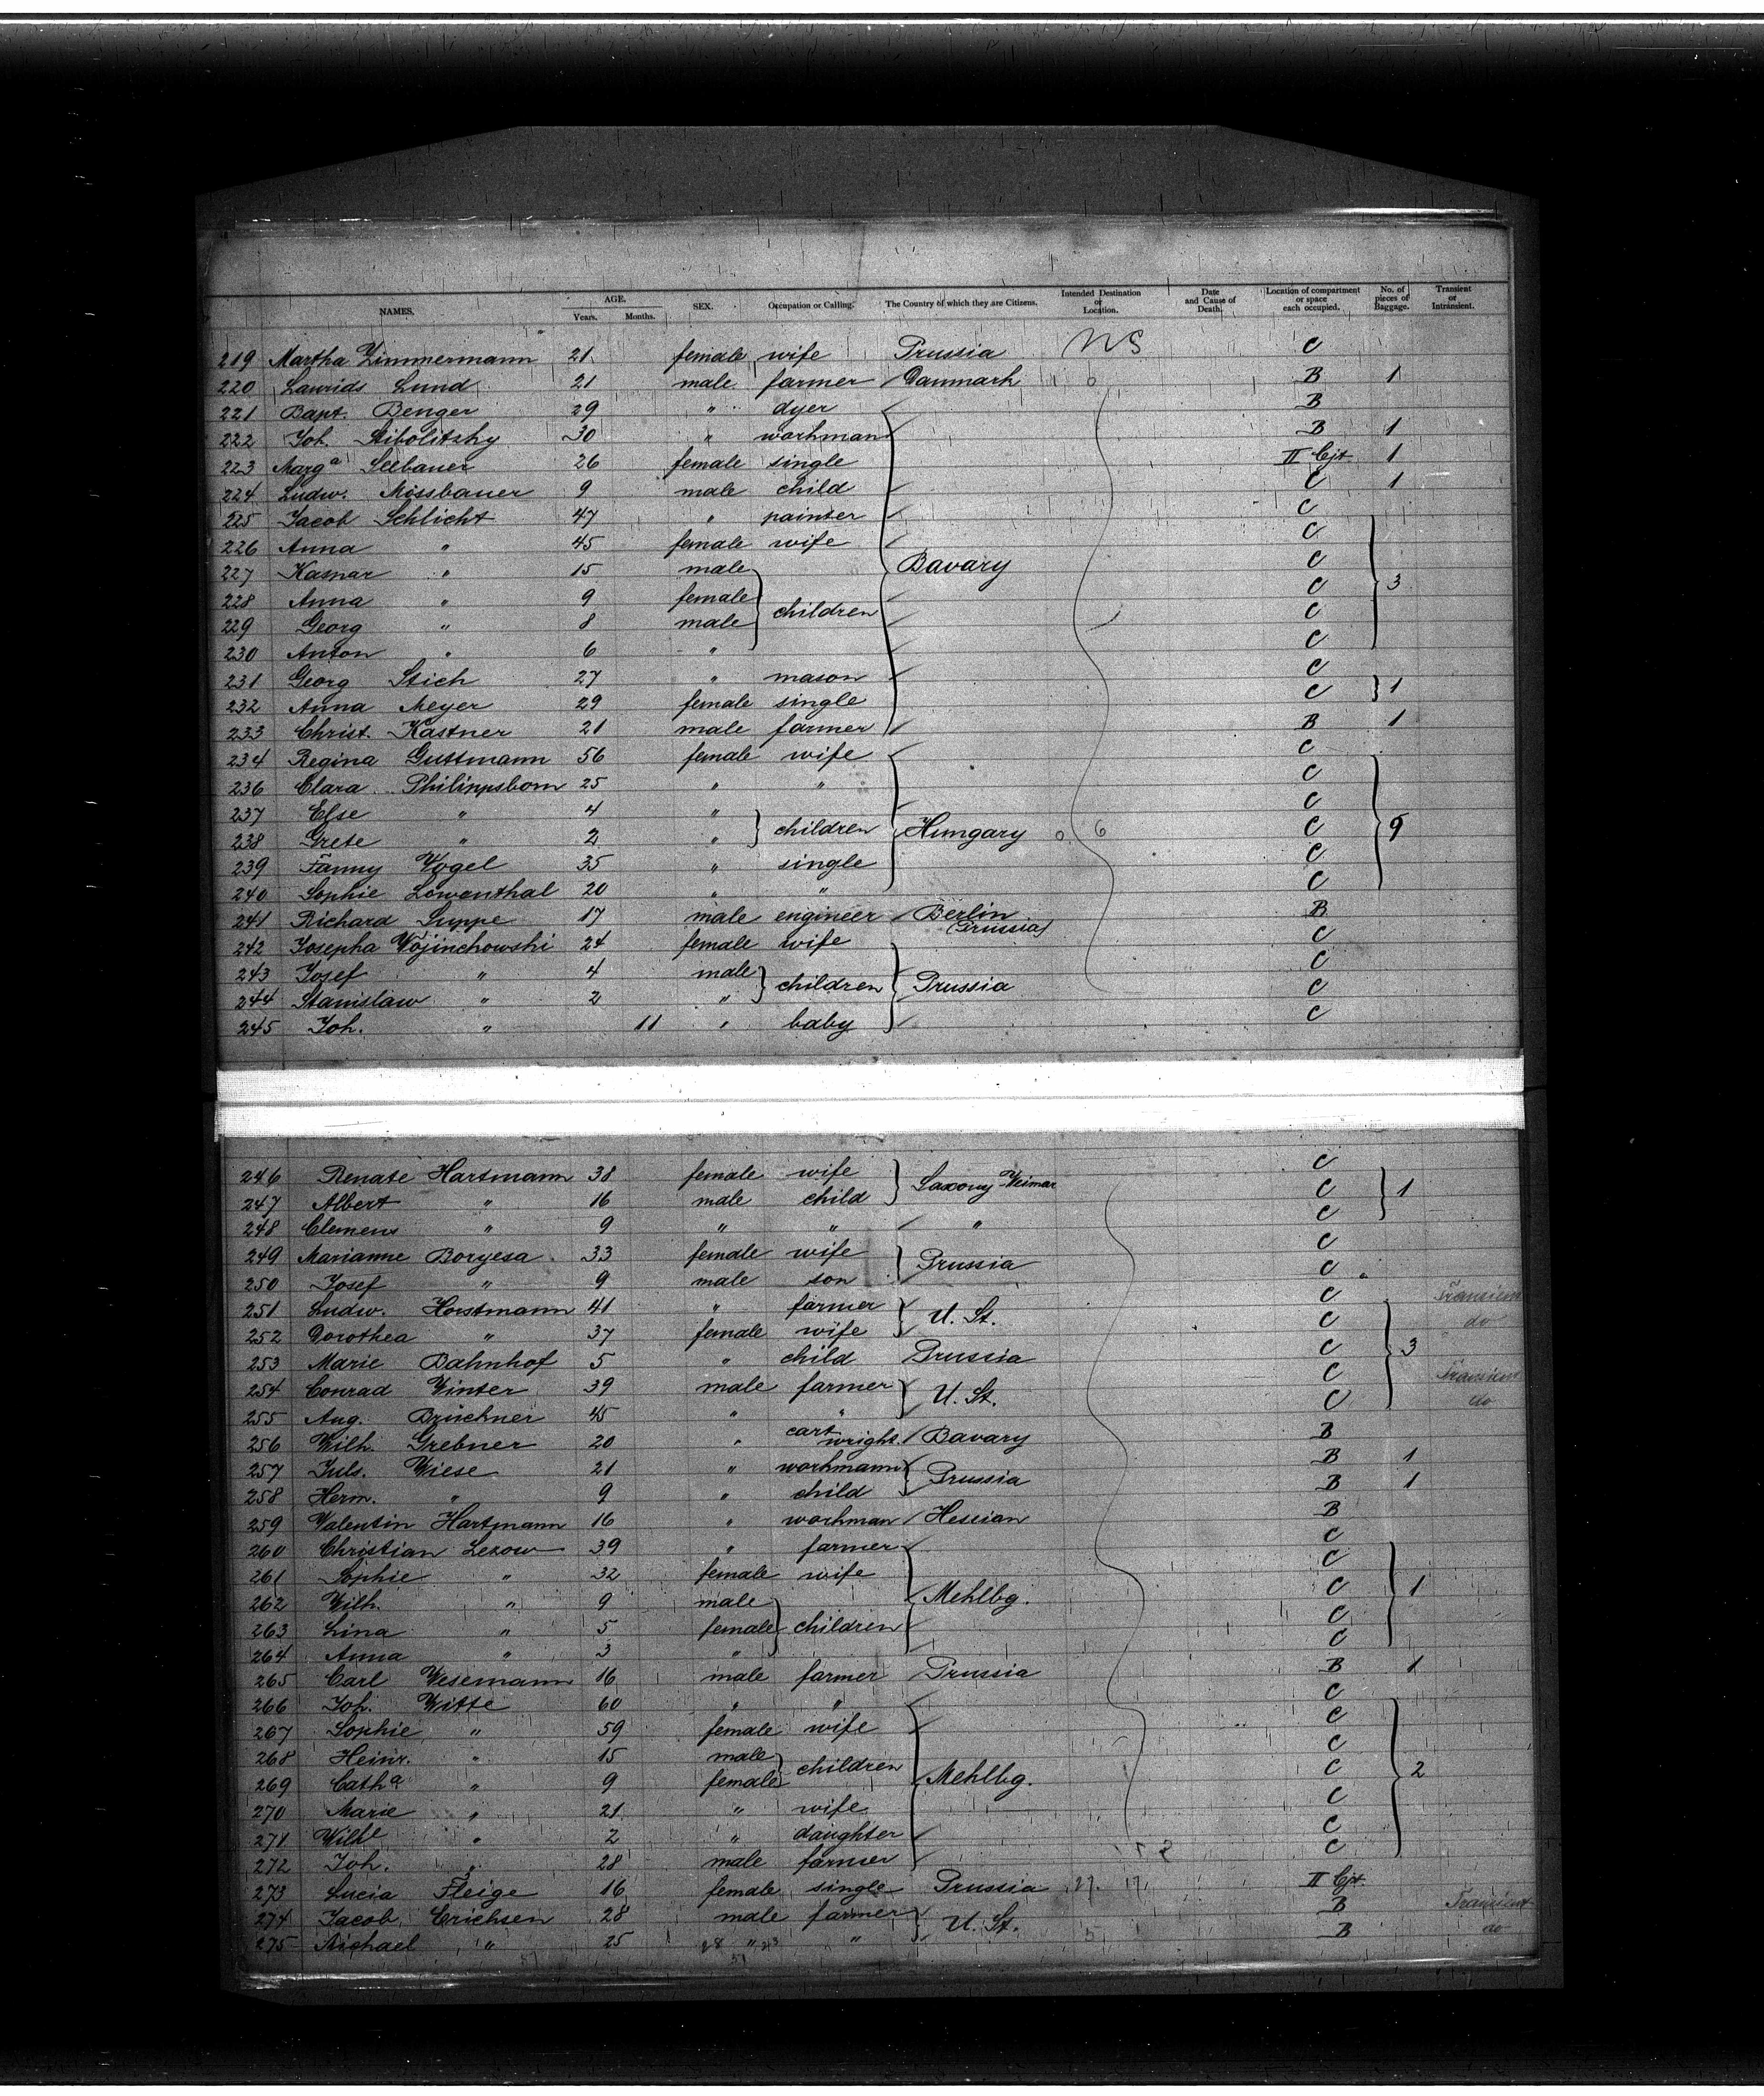 NAMES. AGE. Years. Months. SEX. Occupation or Calling. The Country of which they are Citizens. Intended Destination or Location. Date and Cause of Death. Location of compartment or space each occupied. No. of pieces of Baggage. Transient or Intransient.
219 Martha Zimmermann 21 female wife Prussia C
220 Laurids Lund 21 male farmer Danmark B 1
221 Bapt. Benger 29 " dyer B
222 Joh. Stibolitzky 30 " workman B 1
223 Marga Seebauer 26 female single II Cjt. 1
224 Ludw. Missbauer 9 male child C 1
225 Jacob Schlicht 47 " painter C
226 Anna " 45 female wife C
227 Kaspar " 15 male Bavary C
228 Anna " 9 female C 3
229 Georg " 8 male children C
230 Anton " 6 " C
231 Georg Stich 27 " mason C
232 Anna Meyer 29 female single C 1
233 Christ. Kastner 21 male farmer B 1
234 Regina Guttmann 56 female wife C
236 Clara Philippsborn 25 " " C
237 Else " 4 " C
238 Grete " 2 " children Hungary C 9
239 Fanny Vogel 35 " single C
240 Sophie Lowenthal 20 " " C
241 Richard Suppe 17 male engineer Berlin (Prussia) B
242 Josepha Wojinchowski 24 female wife C
243 Josef " 4 male C
244 Stanislaw " 2 " children Prussia C
245 Joh. " 11 " baby C
246 Renate Hartmann 38 female wife Saxony Weimar C
247 Albert " 16 male child C 1
248 Clemens " 9 " " " C
249 Marianne Boryesa 33 female wife Prussia C
250 Josef " 9 male son C
251 Ludw. Horstmann 41 " farmer U. St. C Transient
252 Dorothea " 37 female wife C do
253 Marie Bahnhof 5 " child Prussia C 3
254 Conrad Winter 39 male farmer U. St. C Transient
255 Aug. Brückner 45 " " C do
256 Wilh. Grebner 20 " cart wright Bavary B
257 Juls. Wiese 21 " workmann Prussia B 1
258 Herm. " 9 " child B 1
259 Valentin Hartmann 16 " workman Hessian B
260 Christian Lexow 39 " farmer C
261 Sophie " 32 female wife C
262 Wilh. " 9 male Mehlbg. C 1
263 Lina " 5 female children C
264 Anna " 3 " C
265 Carl Wesemann 16 male farmer Prussia B 1
266 Joh. Witte 60 " " C
267 Sophie " 59 female wife C
268 Heinr. " 15 male children C
269 Catha " 9 female Mehlbg. C 2
270 Marie " 21 " wife C
271 Wilhe " 2 " daughter C
272 Joh. " 28 male farmer C
273 Lucia Fleige 16 female single Prussia II Cjt.
274 Jacob Erichsen 28 male farmer U. St. B Transient
275 Michael " 25 " " B do